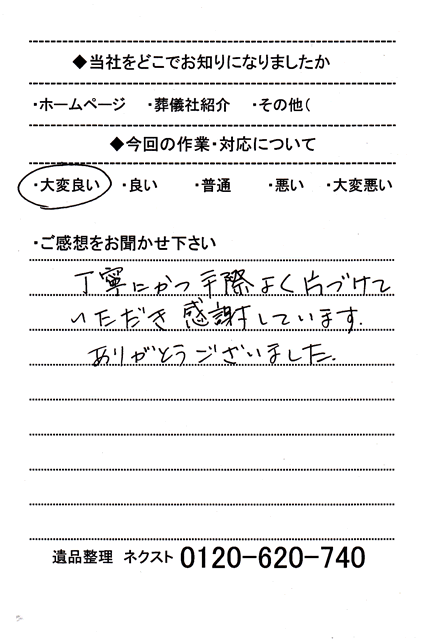 ◆当社をどこでお知りになりましたか
・ホームページ ・葬儀社紹介 ・その他(
◆今回の作業・対応について
・大変良い ・良い ・普通 ・悪い ・大変悪い
・ご感想をお聞かせ下さい
丁寧にかつ手際よく片づけて
いただき感謝しています.
ありがとうございました.
遺品整理 ネクスト 0120-620-740